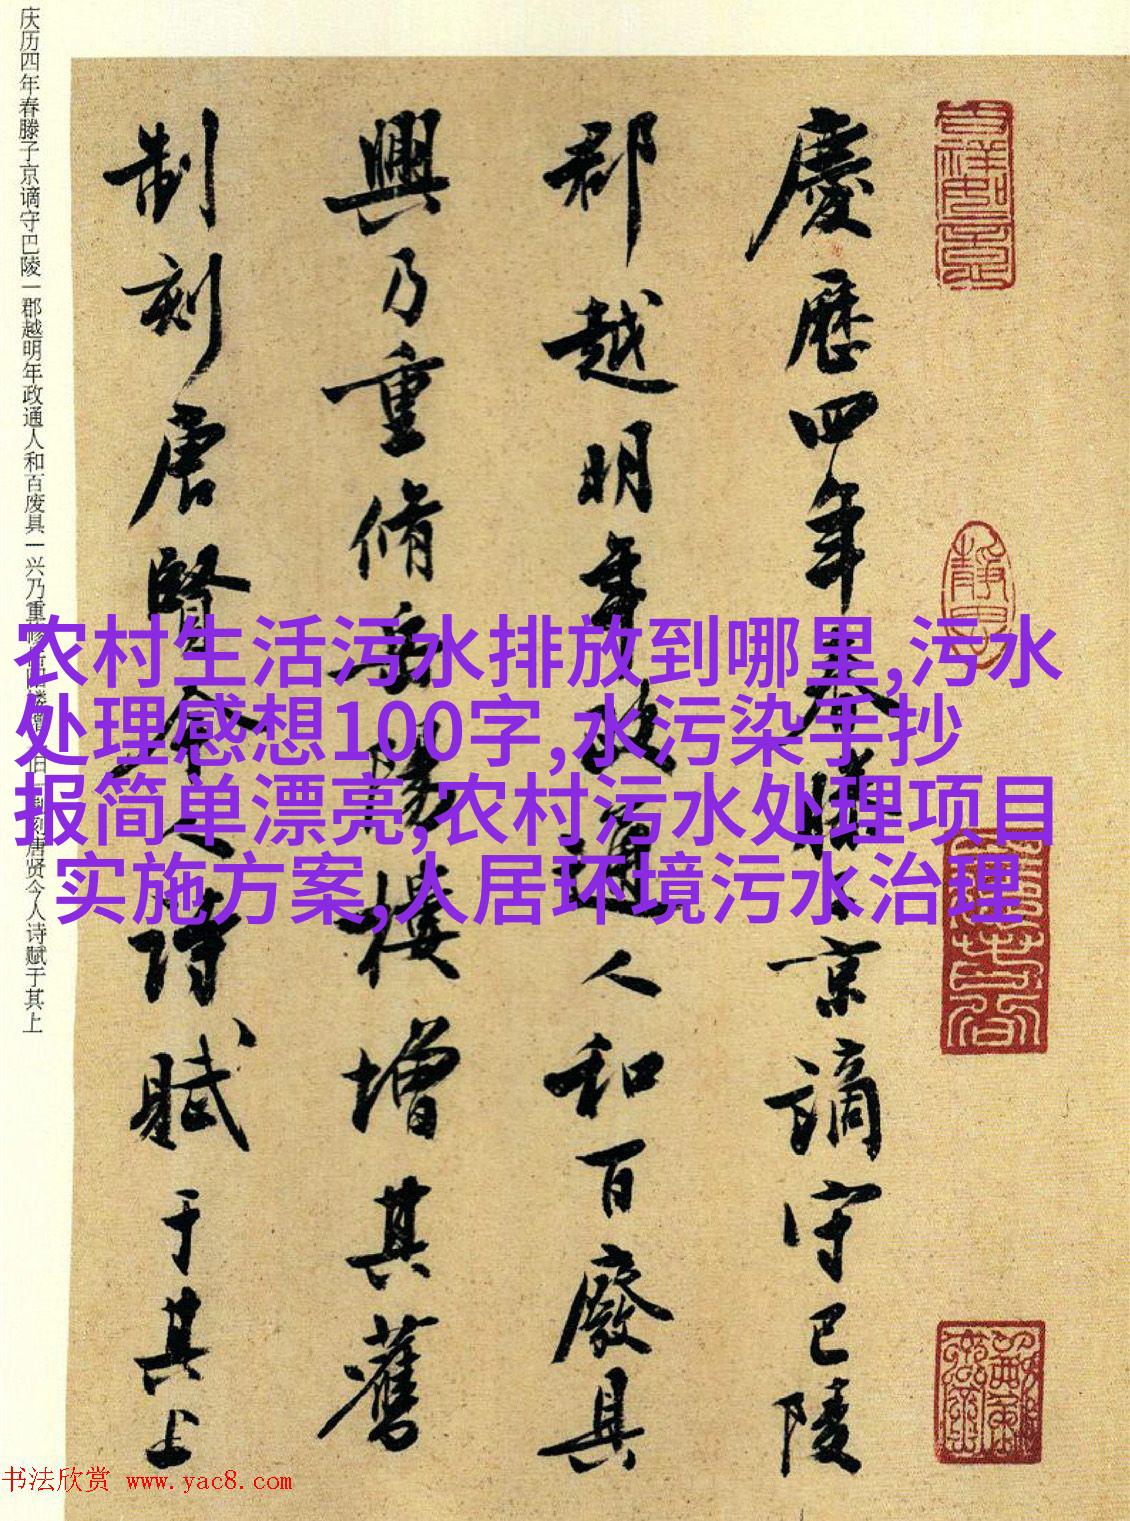 慶歷四年春滕子京謫守巴陵
郡越明年政通人和百廢具
興乃重脩岳陽樓增其舊
制刻唐賢今人詩賦于其上
庆历四年春滕子京谪守巴陵一郡越明年政通人和百废具一兴乃重修岳阳楼增其旧一制刻唐贤今人诗赋于其上
农村生活污水排放到哪里,污水
处理感想100字,水污染手抄
报简单漂亮,农村污水处理项目
实施方案,人居环境污水治理
书法欣赏 www.yac8.com